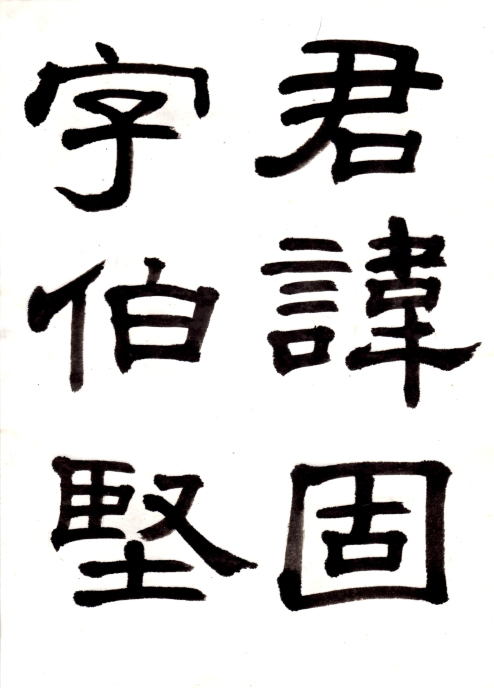 君諱固
字伯堅